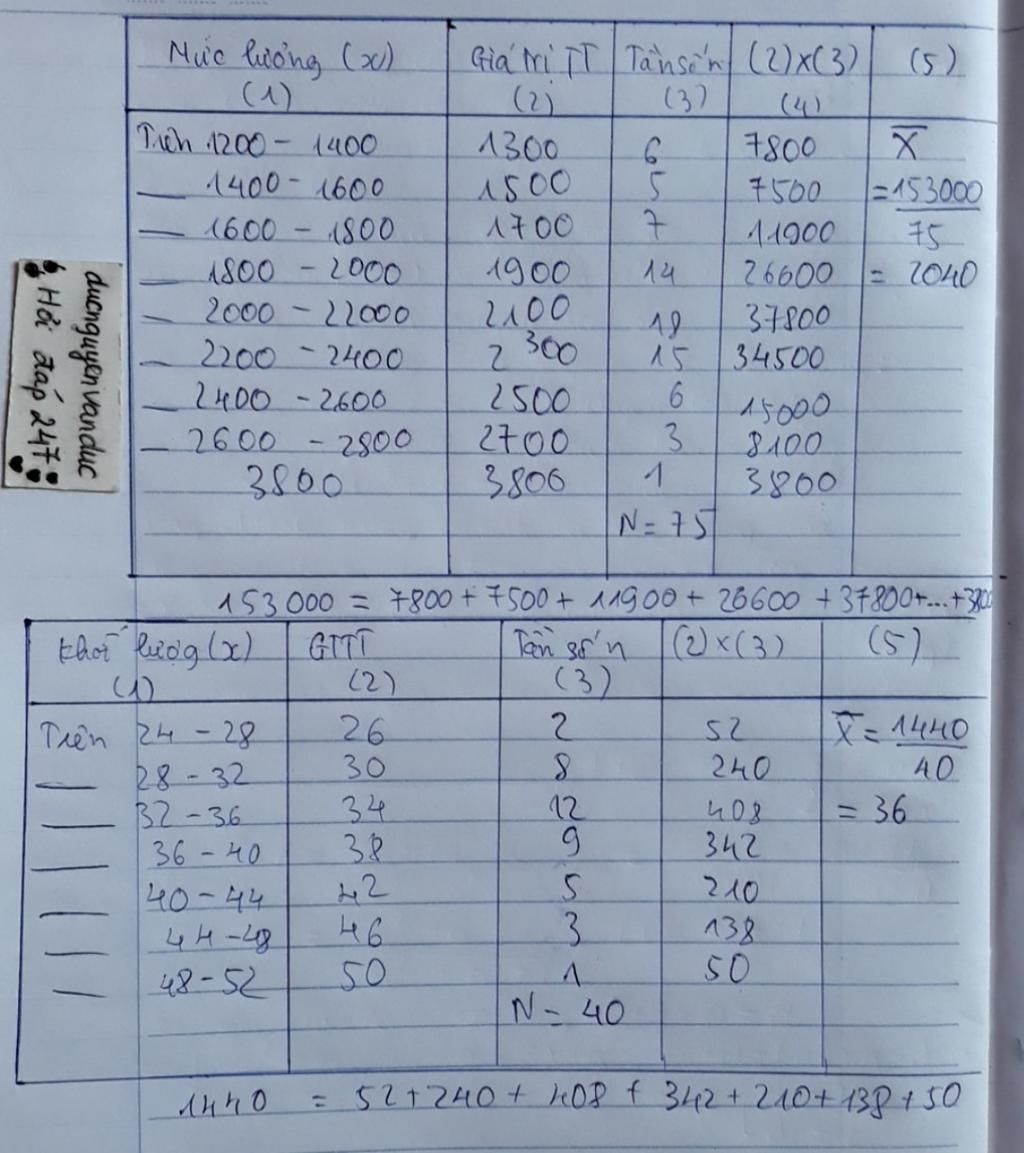 Mức lương (x) Giá trị TT Tần số n (2)x(3) (5)
(1) (2) (3) (4)
Trên 1200 - 1400 1300 6 7800 X̅
— 1400 - 1600 1500 5 7500 = 153000
— 1600 - 1800 1700 7 11900 75
— 1800 - 2000 1900 14 26600 = 2040
— 2000 - 22000 2100 18 37800
— 2200 - 2400 2300 15 34500
— 2400 - 2600 2500 6 15000
— 2600 - 2800 2700 3 8100
3800 3800 1 3800
N = 75
153000 = 7800 + 7500 + 11900 + 26600 + 37800 + ... + 3800
Khối lượng (x) GTTT Tần số n (2)x(3) (5)
(1) (2) (3)
Trên 24 - 28 26 2 52 X̅ = 1440
— 28 - 32 30 8 240 40
— 32 - 36 34 12 408 = 36
— 36 - 40 38 9 342
— 40 - 44 42 5 210
— 44 - 48 46 3 138
— 48 - 52 50 1 50
N = 40
1440 = 52 + 240 + 408 + 342 + 210 + 138 + 50
duongnguyenvanduc
Hỏi đáp 247